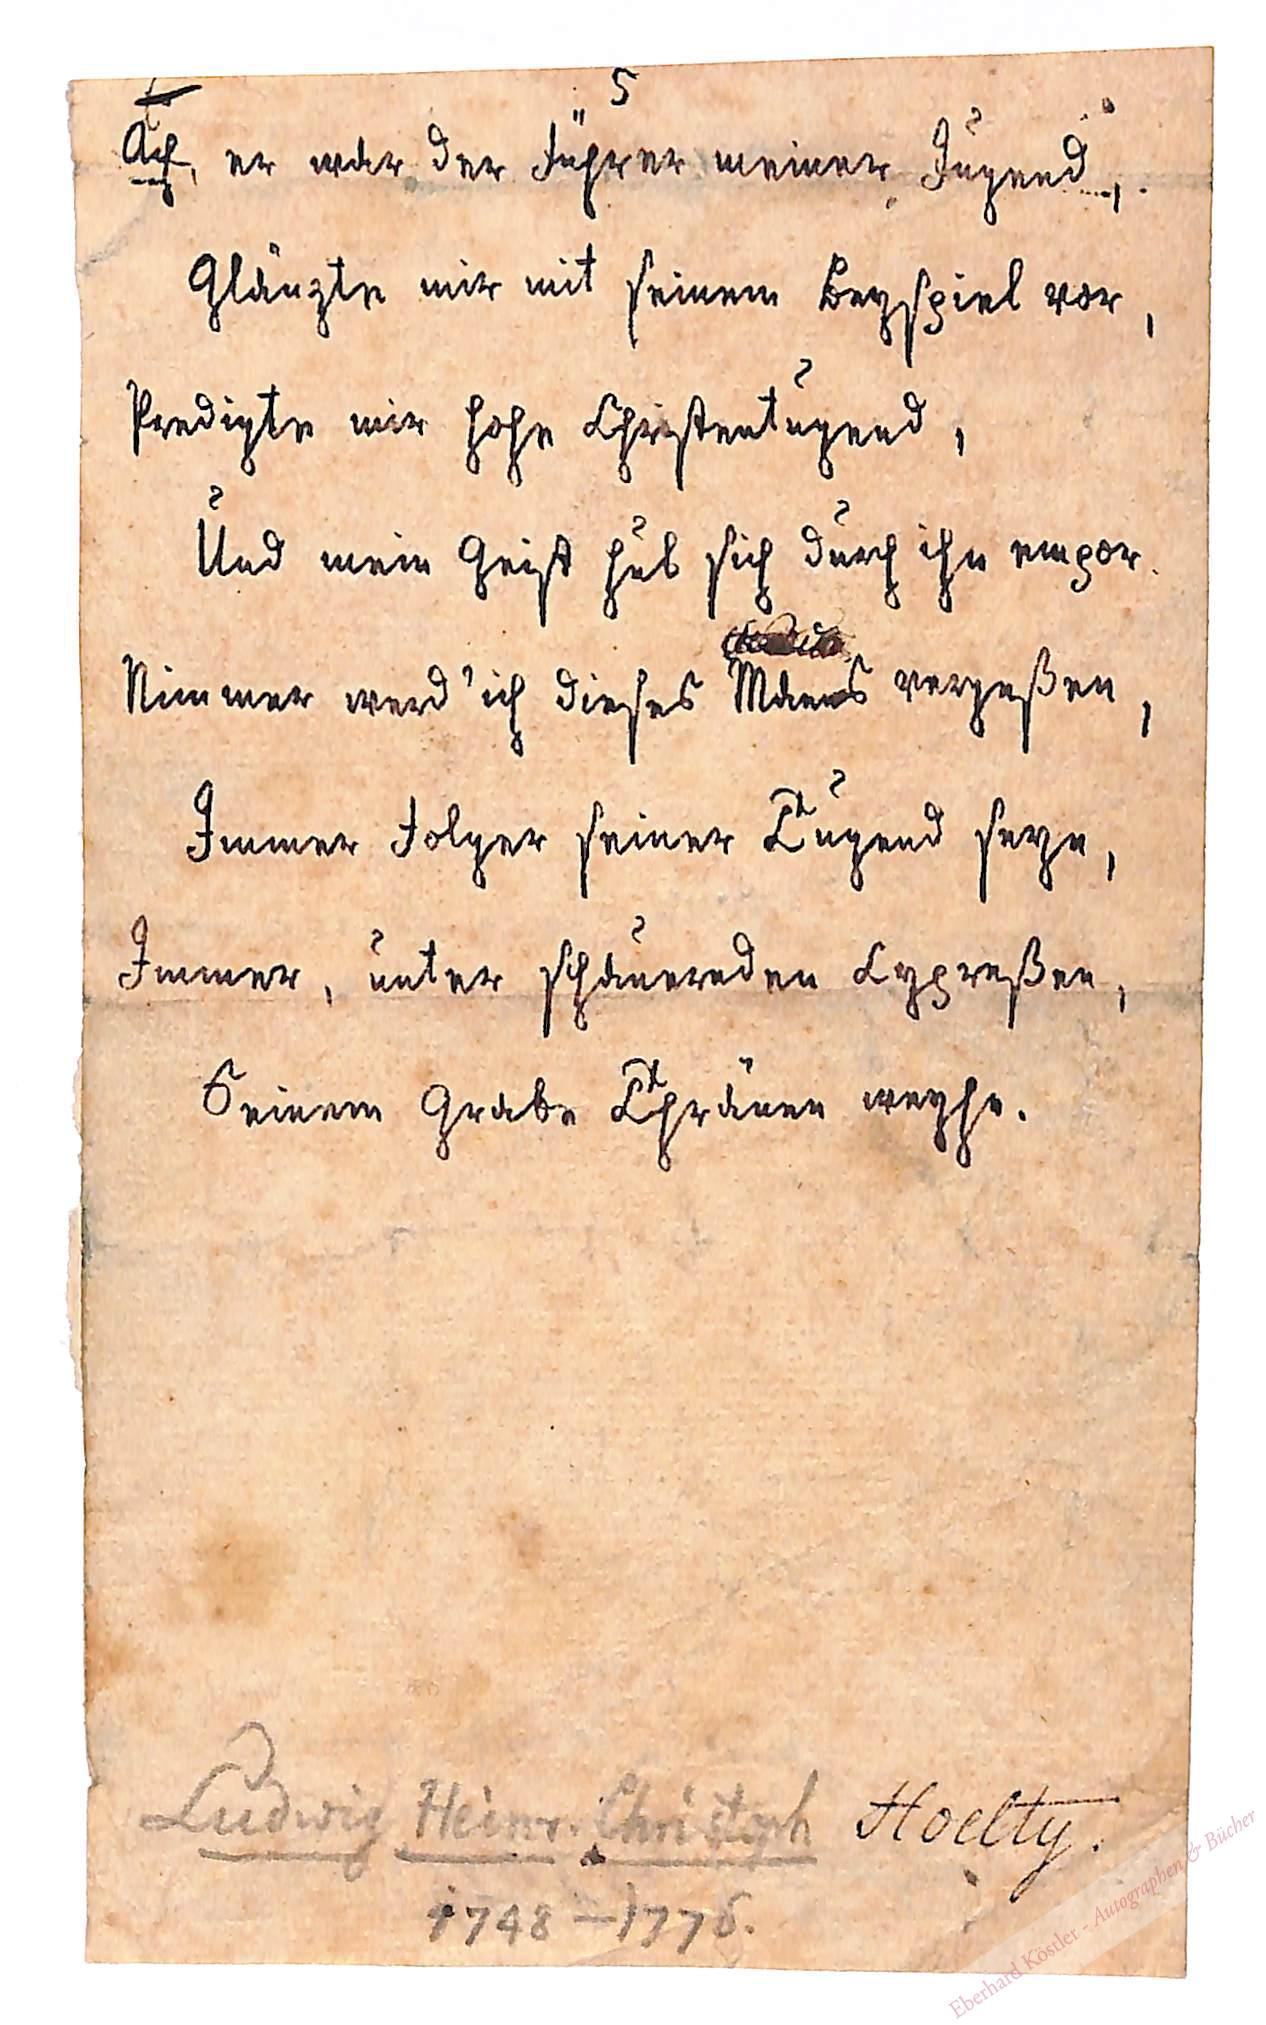 5
Ach, er war der Führer meiner Jugend,
Glänzte mir mit seinem Beyspiel vor,
Predigte mir hohe Christentugend,
Und mein Geist hub sich durch ihn empor.
Nimmer werd' ich dieses Manns vergeßen,
Immer Folger seiner Tugend seyn,
Immer, unter schauernden Cypreßen,
Seinem Grabe Thränen weyhn.
Ludwig Heinr. Christoph Hoelty.
1748–1776.
Eberhard Köstler - Autographen & Bücher